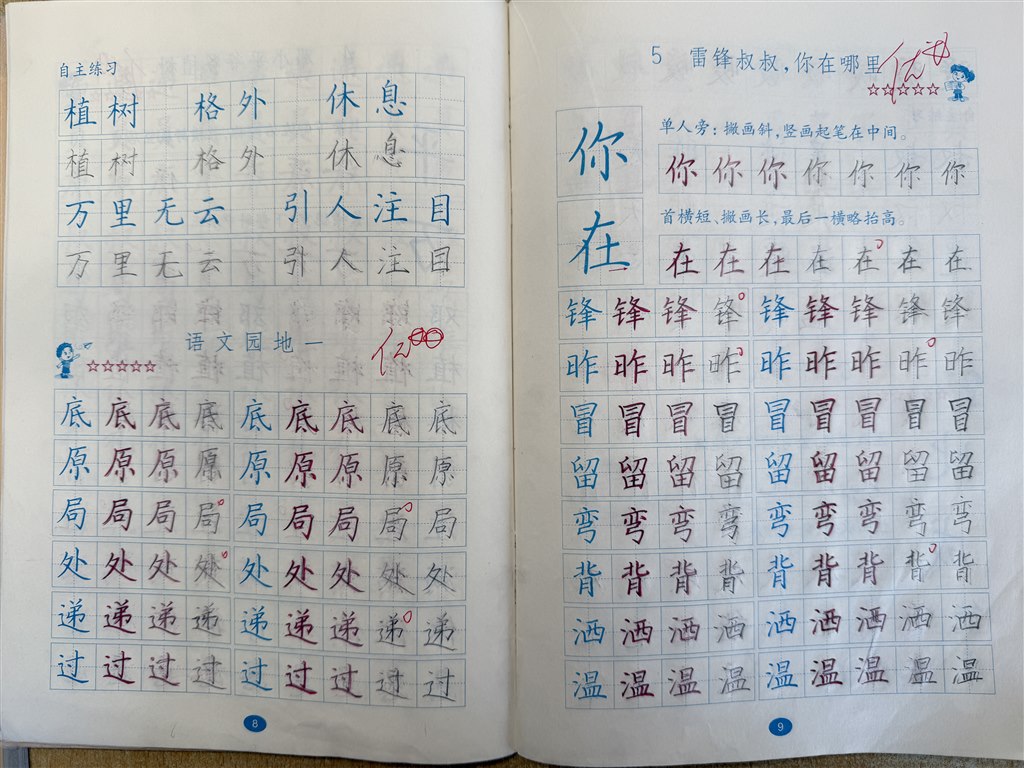 自主练习
植树 格外 休息
植树 格外 休息
万里无云 引人注目
万里无云 引人注目
语文园地一
☆☆☆☆☆
底底底底底底底底底
原原原原原原原原原
局局局局局局局局局
处处处处处处处处处
递递递递递递递递递
过过过过过过过过过
8
5 雷锋叔叔,你在哪里
☆☆☆☆☆
你
单人旁:撇画斜,竖画起笔在中间。
你你你你你你你
在
首横短、撇画长,最后一横略抬高。
在在在在在在在
锋锋锋锋锋锋锋锋锋
昨昨昨昨昨昨昨昨昨
冒冒冒冒冒冒冒冒冒
留留留留留留留留留
弯弯弯弯弯弯弯弯弯
背背背背背背背背背
洒洒洒洒洒洒洒洒洒
温温温温温温温温温
9